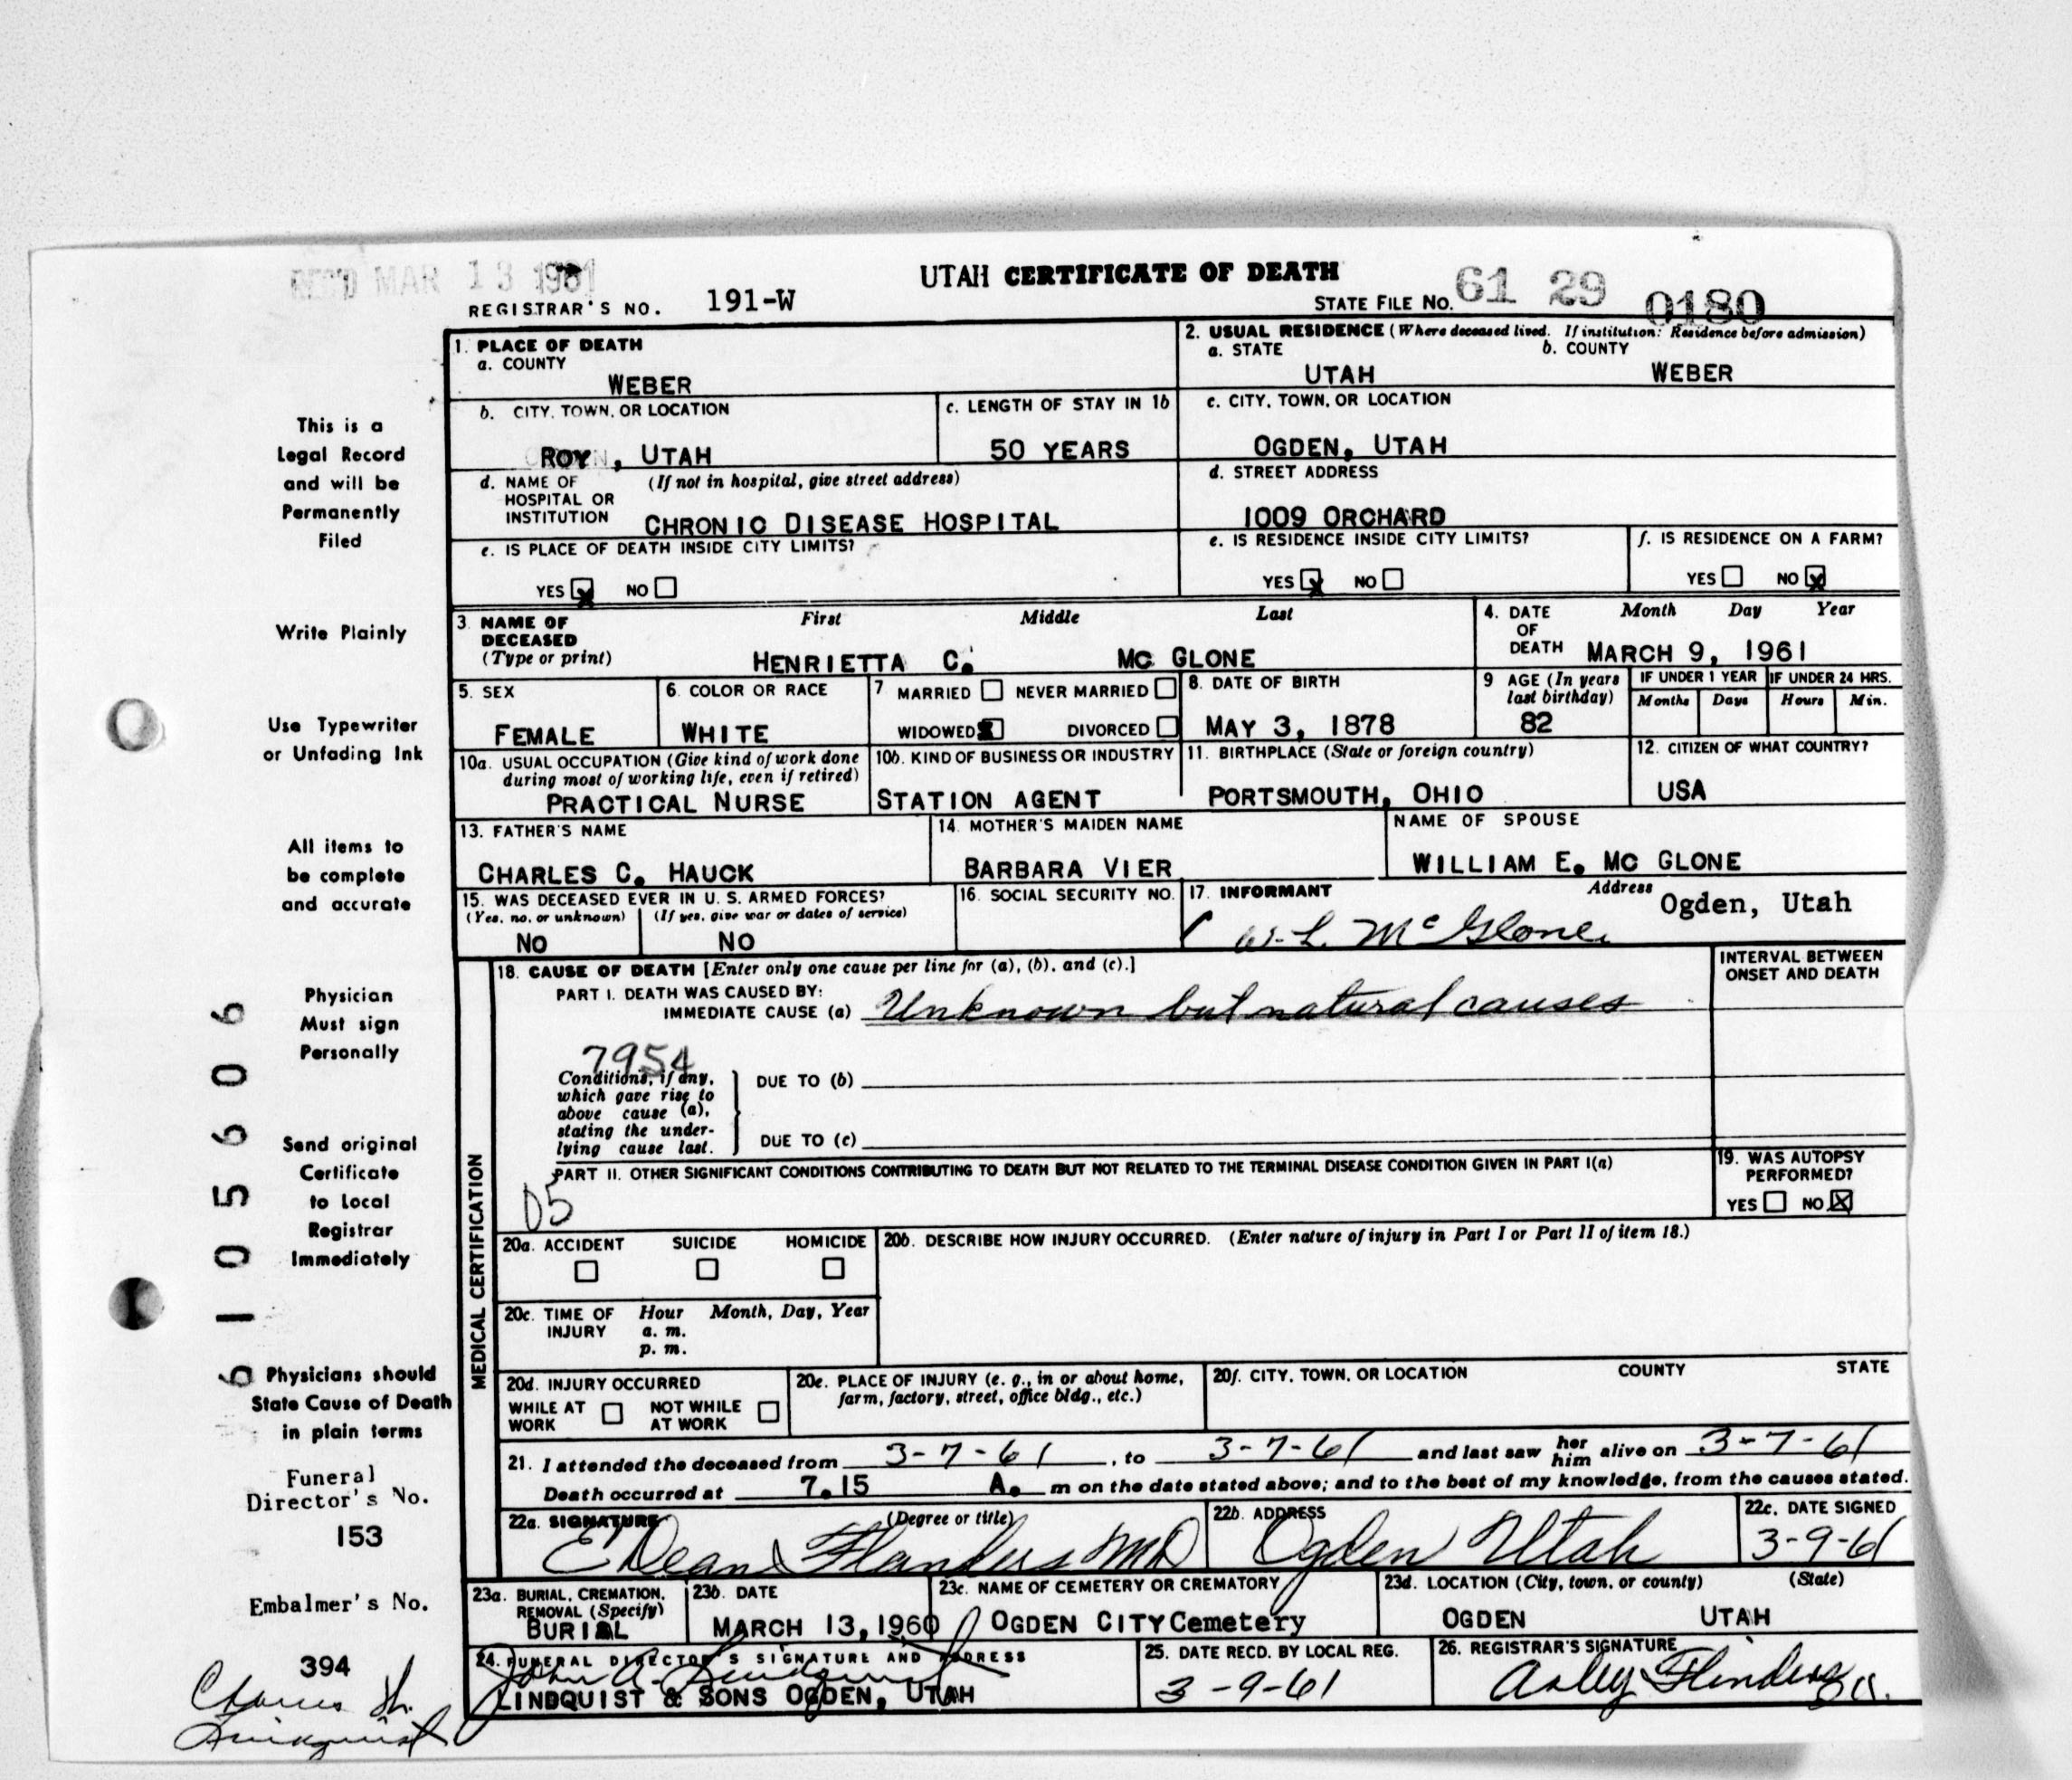 REC'D MAR 13 1961
UTAH CERTIFICATE OF DEATH
REGISTRAR'S NO. 191-W
STATE FILE NO. 61 29 0180
1. PLACE OF DEATH
a. COUNTY
WEBER
2. USUAL RESIDENCE (Where deceased lived. If institution: Residence before admission)
a. STATE b. COUNTY
UTAH WEBER
b. CITY, TOWN, OR LOCATION
ROY, UTAH
c. LENGTH OF STAY IN 1b
50 YEARS
c. CITY, TOWN, OR LOCATION
OGDEN, UTAH
d. NAME OF (If not in hospital, give street address)
HOSPITAL OR
INSTITUTION CHRONIC DISEASE HOSPITAL
d. STREET ADDRESS
1009 ORCHARD
e. IS PLACE OF DEATH INSIDE CITY LIMITS?
YES X NO
e. IS RESIDENCE INSIDE CITY LIMITS?
YES X NO
f. IS RESIDENCE ON A FARM?
YES NO X
3. NAME OF First Middle Last
DECEASED
(Type or print) HENRIETTA C. MC GLONE
4. DATE Month Day Year
OF
DEATH MARCH 9, 1961
5. SEX
FEMALE
6. COLOR OR RACE
WHITE
7 MARRIED NEVER MARRIED
WIDOWED X DIVORCED
8. DATE OF BIRTH
MAY 3, 1878
9 AGE (In years
last birthday)
82
IF UNDER 1 YEAR
Months Days
IF UNDER 24 HRS.
Hours Min.
10a. USUAL OCCUPATION (Give kind of work done
during most of working life, even if retired)
PRACTICAL NURSE
10b. KIND OF BUSINESS OR INDUSTRY
STATION AGENT
11. BIRTHPLACE (State or foreign country)
PORTSMOUTH, OHIO
12. CITIZEN OF WHAT COUNTRY?
USA
13. FATHER'S NAME
CHARLES C. HAUCK
14. MOTHER'S MAIDEN NAME
BARBARA VIER
NAME OF SPOUSE
WILLIAM E. MC GLONE
15. WAS DECEASED EVER IN U. S. ARMED FORCES?
(Yes, no, or unknown) (If yes, give war or dates of service)
NO NO
16. SOCIAL SECURITY NO.
17. INFORMANT Address
W. L. McGlone Ogden, Utah
MEDICAL CERTIFICATION
18. CAUSE OF DEATH [Enter only one cause per line for (a), (b), and (c).]
PART I. DEATH WAS CAUSED BY:
IMMEDIATE CAUSE (a) Unknown but natural causes
INTERVAL BETWEEN
ONSET AND DEATH
7954
Conditions, if any,
which gave rise to
above cause (a),
stating the under-
lying cause last.
DUE TO (b)
DUE TO (c)
PART II. OTHER SIGNIFICANT CONDITIONS CONTRIBUTING TO DEATH BUT NOT RELATED TO THE TERMINAL DISEASE CONDITION GIVEN IN PART I(a)
05
19. WAS AUTOPSY
PERFORMED?
YES NO X
20a. ACCIDENT SUICIDE HOMICIDE
20b. DESCRIBE HOW INJURY OCCURRED. (Enter nature of injury in Part I or Part II of item 18.)
20c. TIME OF Hour Month, Day, Year
INJURY a. m.
p. m.
20d. INJURY OCCURRED
WHILE AT NOT WHILE
WORK AT WORK
20e. PLACE OF INJURY (e. g., in or about home,
farm, factory, street, office bldg., etc.)
20f. CITY, TOWN, OR LOCATION COUNTY STATE
21. I attended the deceased from 3-7-61, to 3-7-61 and last saw her him alive on 3-7-61
Death occurred at 7.15 A. m on the date stated above; and to the best of my knowledge, from the causes stated.
22a. SIGNATURE (Degree or title)
E Dean Flanders MD
22b. ADDRESS
Ogden Utah
22c. DATE SIGNED
3-9-61
23a. BURIAL, CREMATION,
REMOVAL (Specify)
BURIAL
23b. DATE
MARCH 13, 1960
23c. NAME OF CEMETERY OR CREMATORY
OGDEN CITY Cemetery
23d. LOCATION (City, town, or county) (State)
OGDEN UTAH
24. FUNERAL DIRECTOR'S SIGNATURE AND ADDRESS
John A. Lindquist
LINDQUIST & SONS OGDEN, UTAH
25. DATE RECD. BY LOCAL REG.
3-9-61
26. REGISTRAR'S SIGNATURE
This is a
Legal Record
and will be
Permanently
Filed
Write Plainly
Use Typewriter
or Unfading Ink
All items to
be complete
and accurate
Physician
Must sign
Personally
Send original
Certificate
to Local
Registrar
Immediately
Physicians should
State Cause of Death
in plain terms
Funeral
Director's No.
153
Embalmer's No.
394
Lindquist
6105606